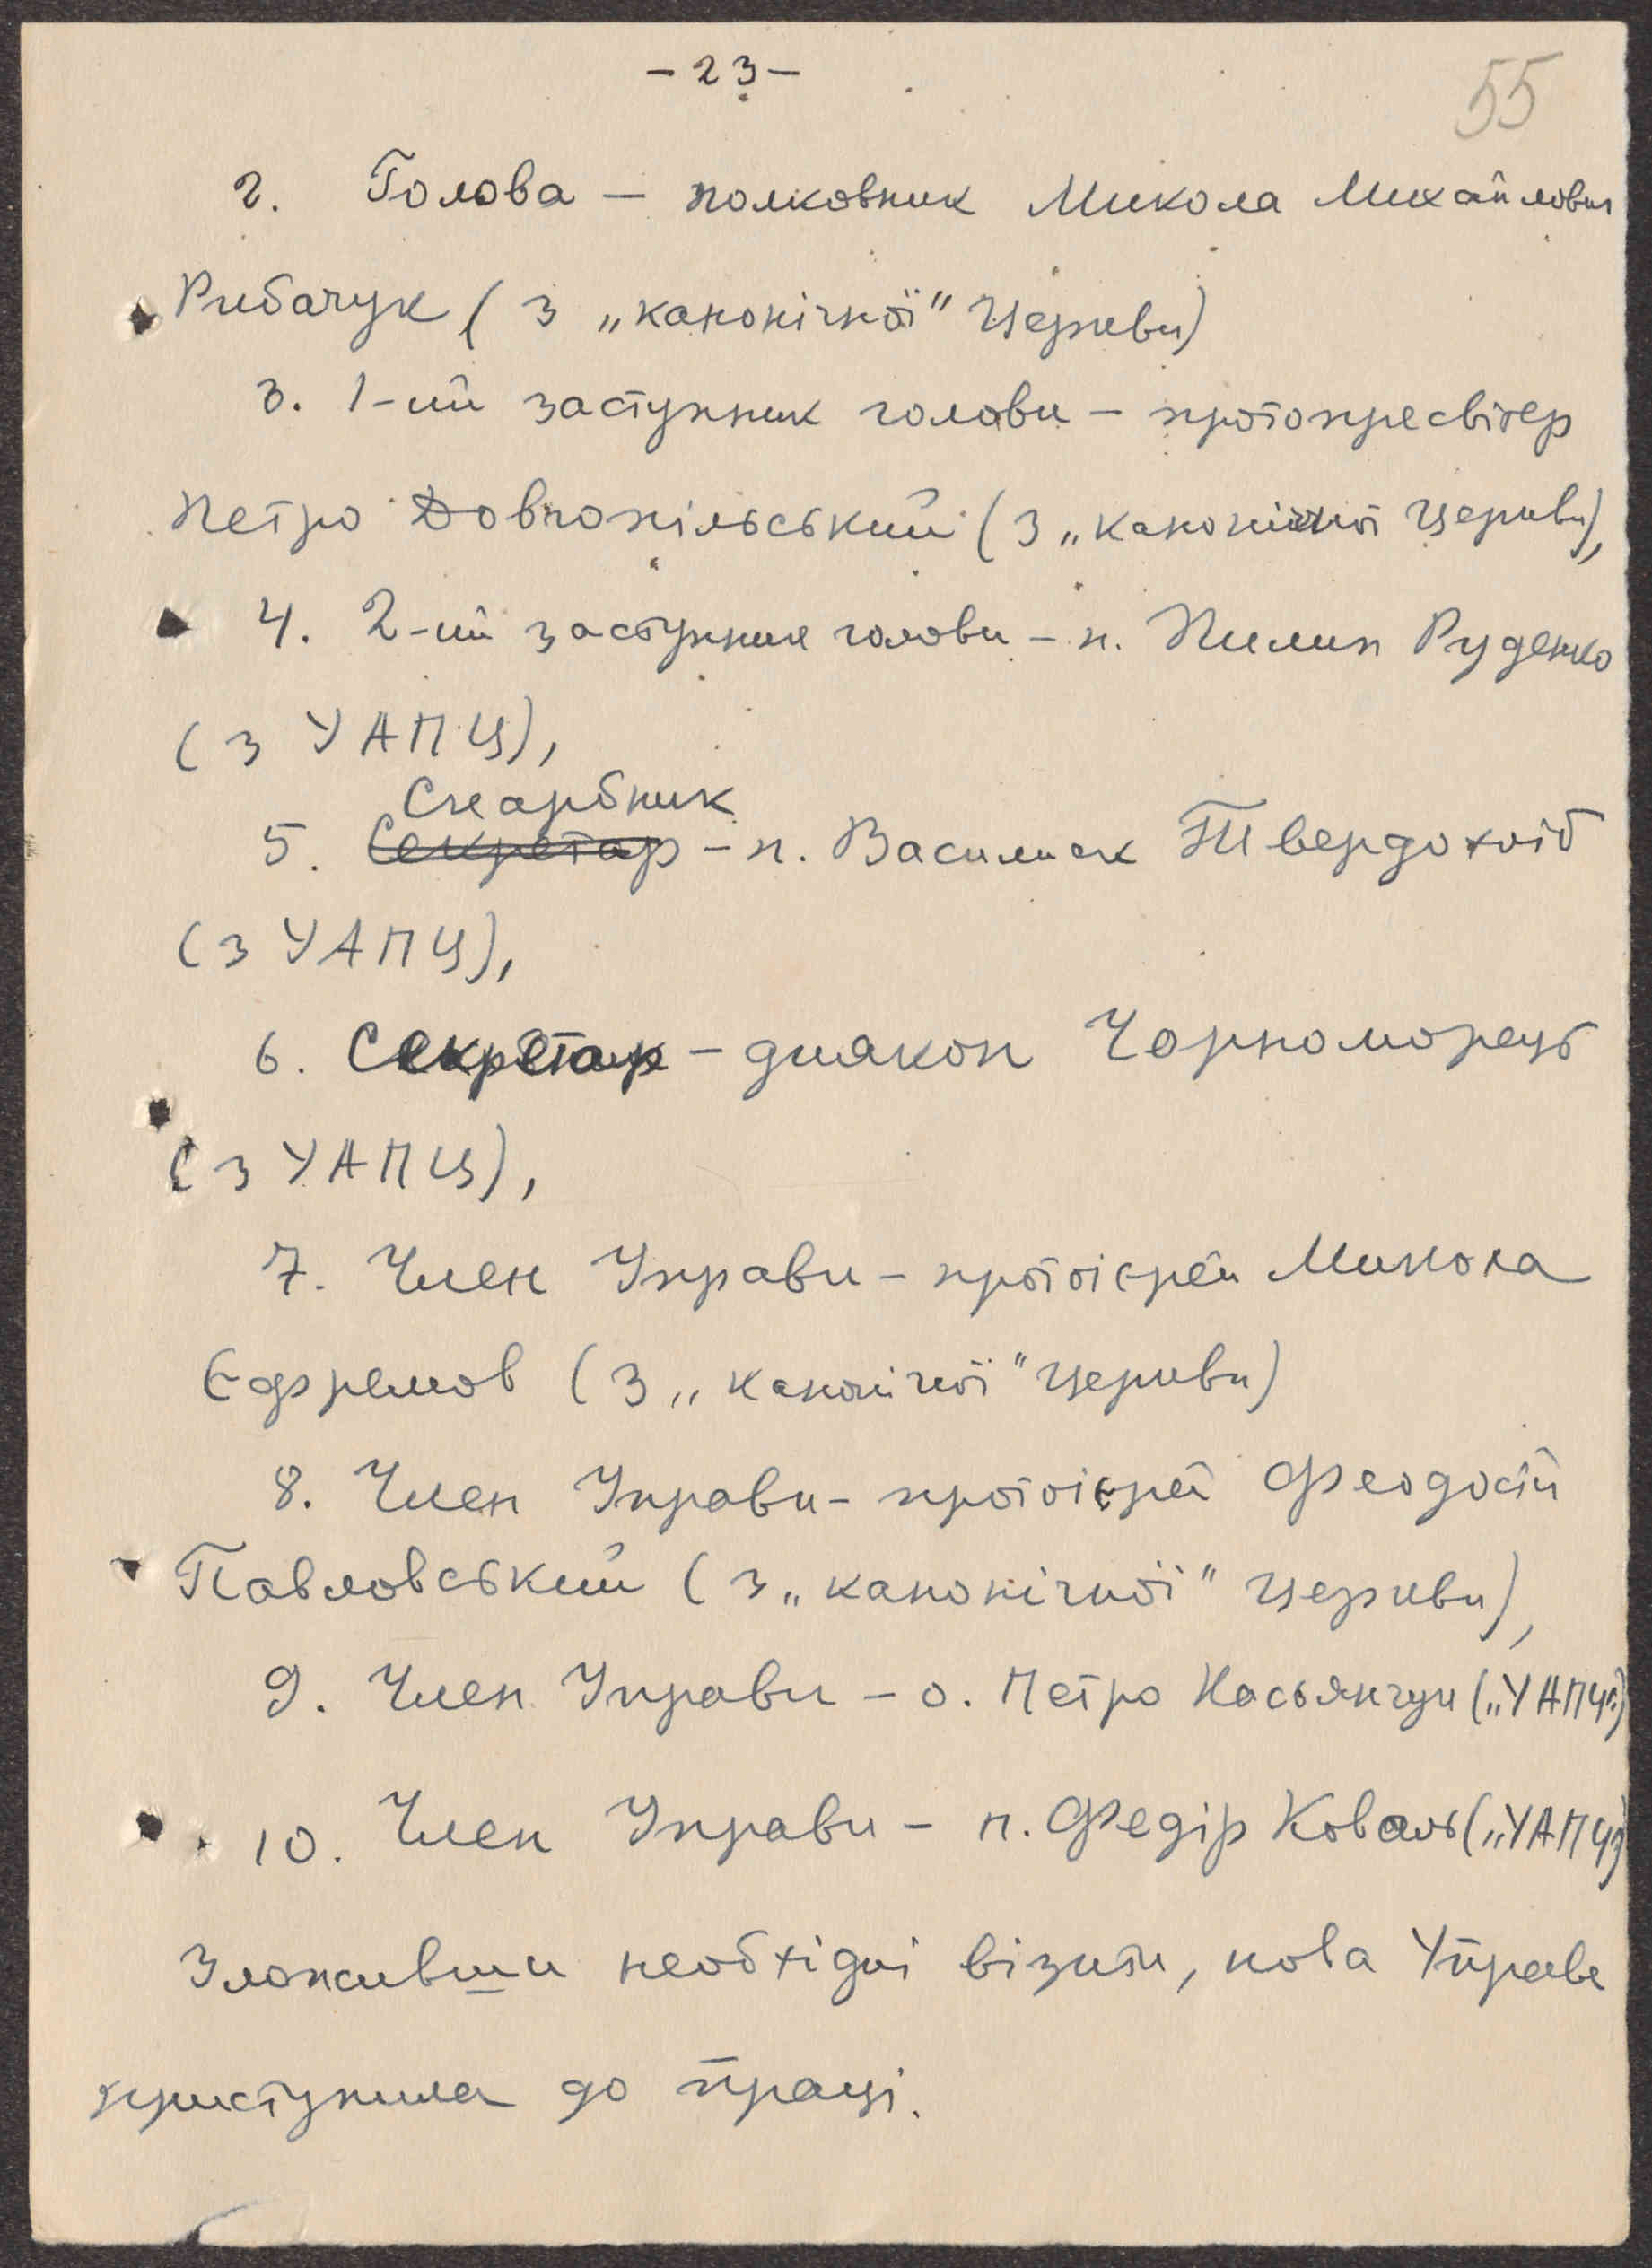 - 23 -
55
2. Голова — полковник Микола Михайлович
Рибачук (з „канонічної" Церкви)
3. 1-ий заступник голови - протопресвітер
Петро Довгопільський (з „канонічної Церкви),
4. 2-ий заступник голови - п. Пилип Руденко
(з УАПЦ),
Скарбник
5. Секретар - п. Василь Твердохліб
(з УАПЦ),
6. Секретар - диякон Чорноморець
(з УАПЦ),
7. Член Управи - протоієрей Микола
Єфремов (з „канонічної" Церкви)
8. Член Управи - протоієрей Феодосій
Павловський (з „канонічної" Церкви),
9. Член Управи - о. Петро Касьянчук („УАПЦ")
10. Член Управи - п. Федір Коваль („УАПЦ")
Зложивши необхідні візити, нова Управа
приступила до праці.